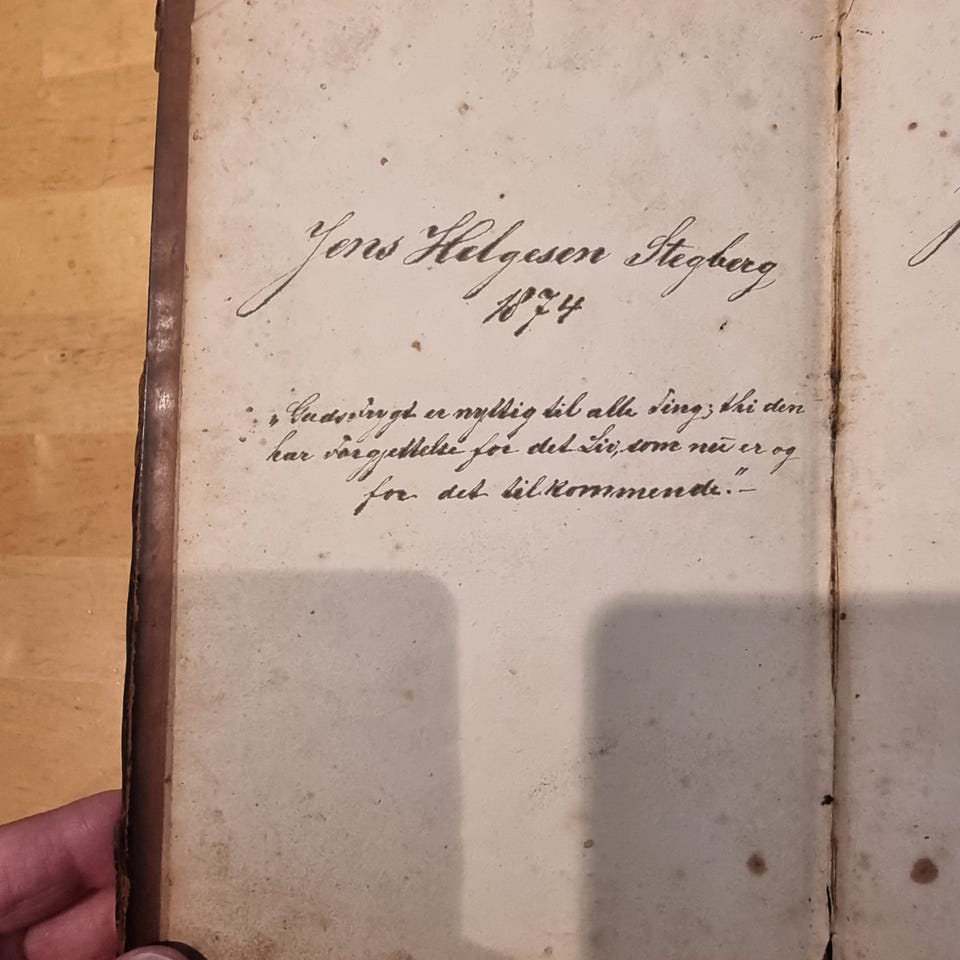 Jens Helgesen Stegberg
1874
„Gudsfrygt er nyttig til alle Ting; thi den
har Forgjettelse for det Liv, som nu er og
for det tilkommende."—